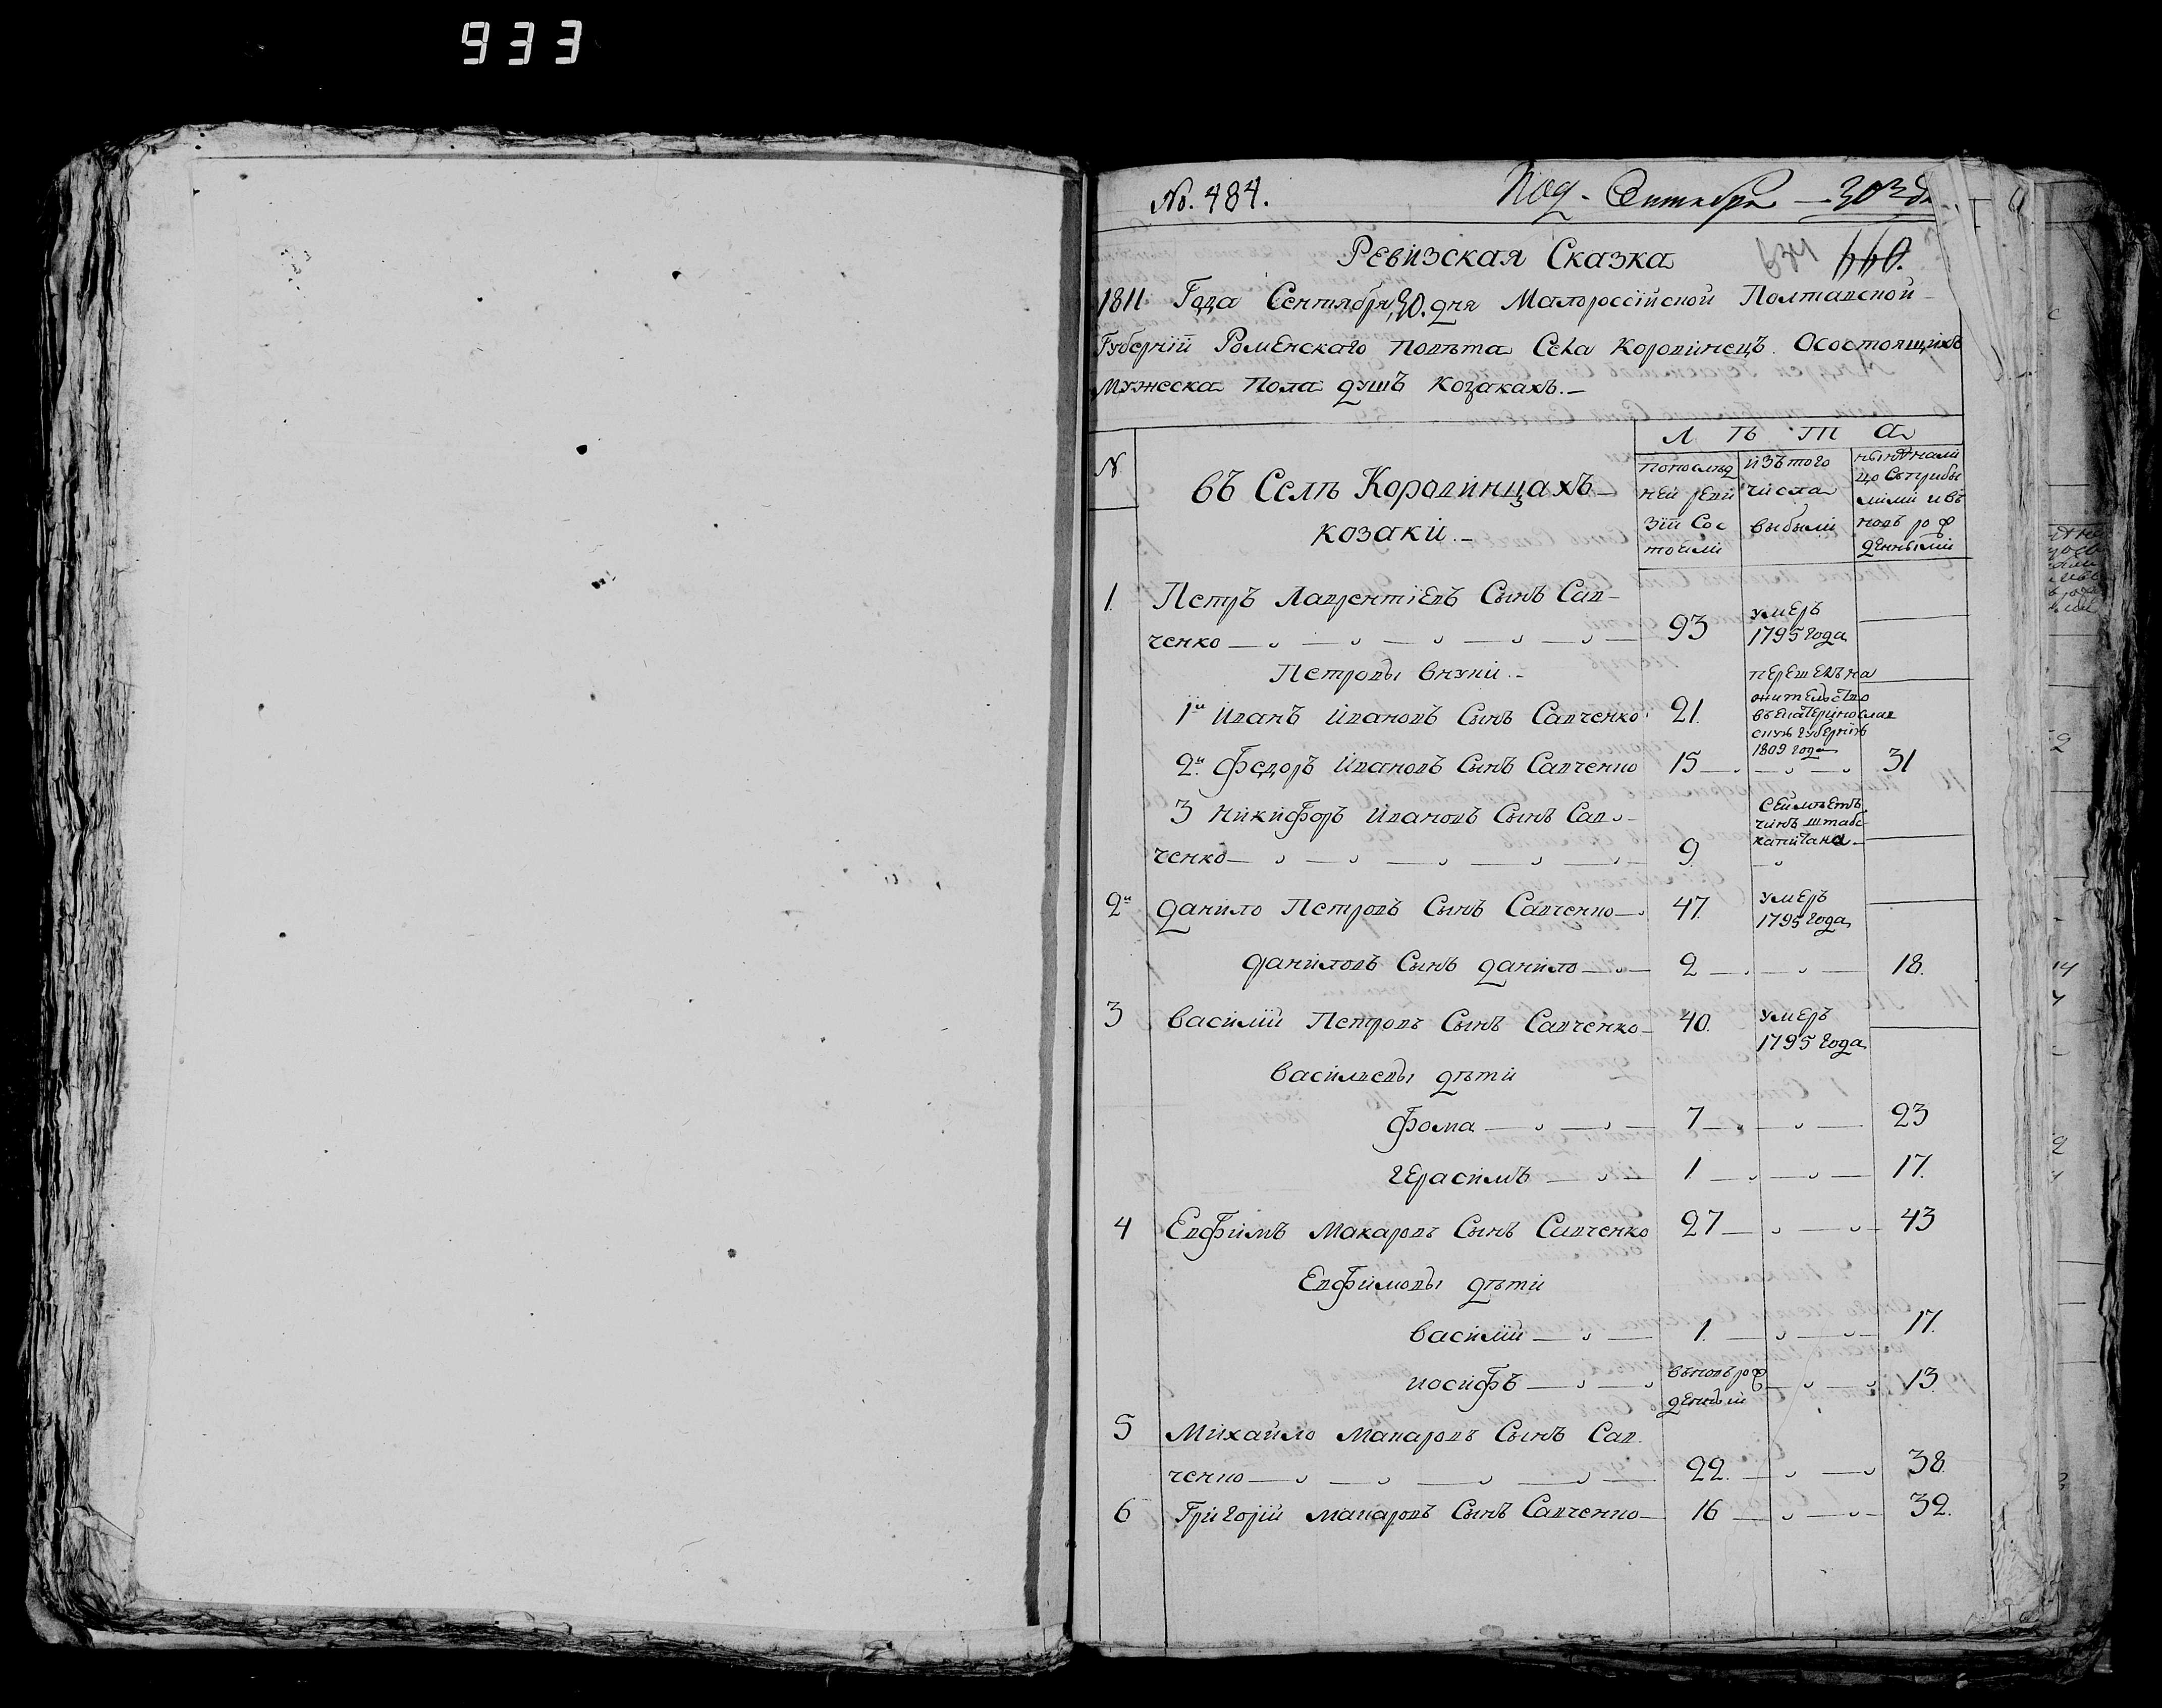 933
No. 484.
Под - Сентября - 30 го дн
Ревизская Сказка 634 660.
1811 Года Сентября, 30. дня Малороссійской Полтавской
Губерніи Роменскаго Повѣта Села Коровинецъ. О состоящихъ
мужеска Пола душъ Козакахъ.-
Л ѣ т а
N
въ Селѣ Коровинцахъ
козаки.-
по послѣд
ней реви
зіи Сос
тоили
изъ того
числа
выбыли
нынѣ нали
цо Съ прибы
лими и въ
новь рож
денными
1. Петръ Лаврентіевъ Сынъ Сав-
ченко 93 умеръ
1795 года
Петровы внуки.- перешелъ на
1й Иванъ Ивановъ Сынъ Савченко 21. жительство
въ Екатеринослав
скую губернію
1809 года
2й Федоръ Ивановъ Сынъ Савченко 15 31
3 Никифоръ Ивановъ Сынъ Сав
ченко 9
Сей имѣетъ
чинъ штабс
капитана
2й Данило Петровъ Сынъ Савченко 47. умеръ
1795 года
Даниловъ Сынъ Данило 2 18.
3 Василій Петровъ Сынъ Савченко 40. умеръ
1795 года
Васильевы дѣти
Фома 7 23
Герасимъ 1 17.
4 Евфимъ Макаровъ Сынъ Савченко 27 43
Евфимовы дѣти
Василій 1. 17.
Иосифъ вновь рож
денный 13.
5 Михайло Макаровъ Сынъ Сав
ченко 22. 38.
6 Григорій Макаровъ Сынъ Савченко 16 32.